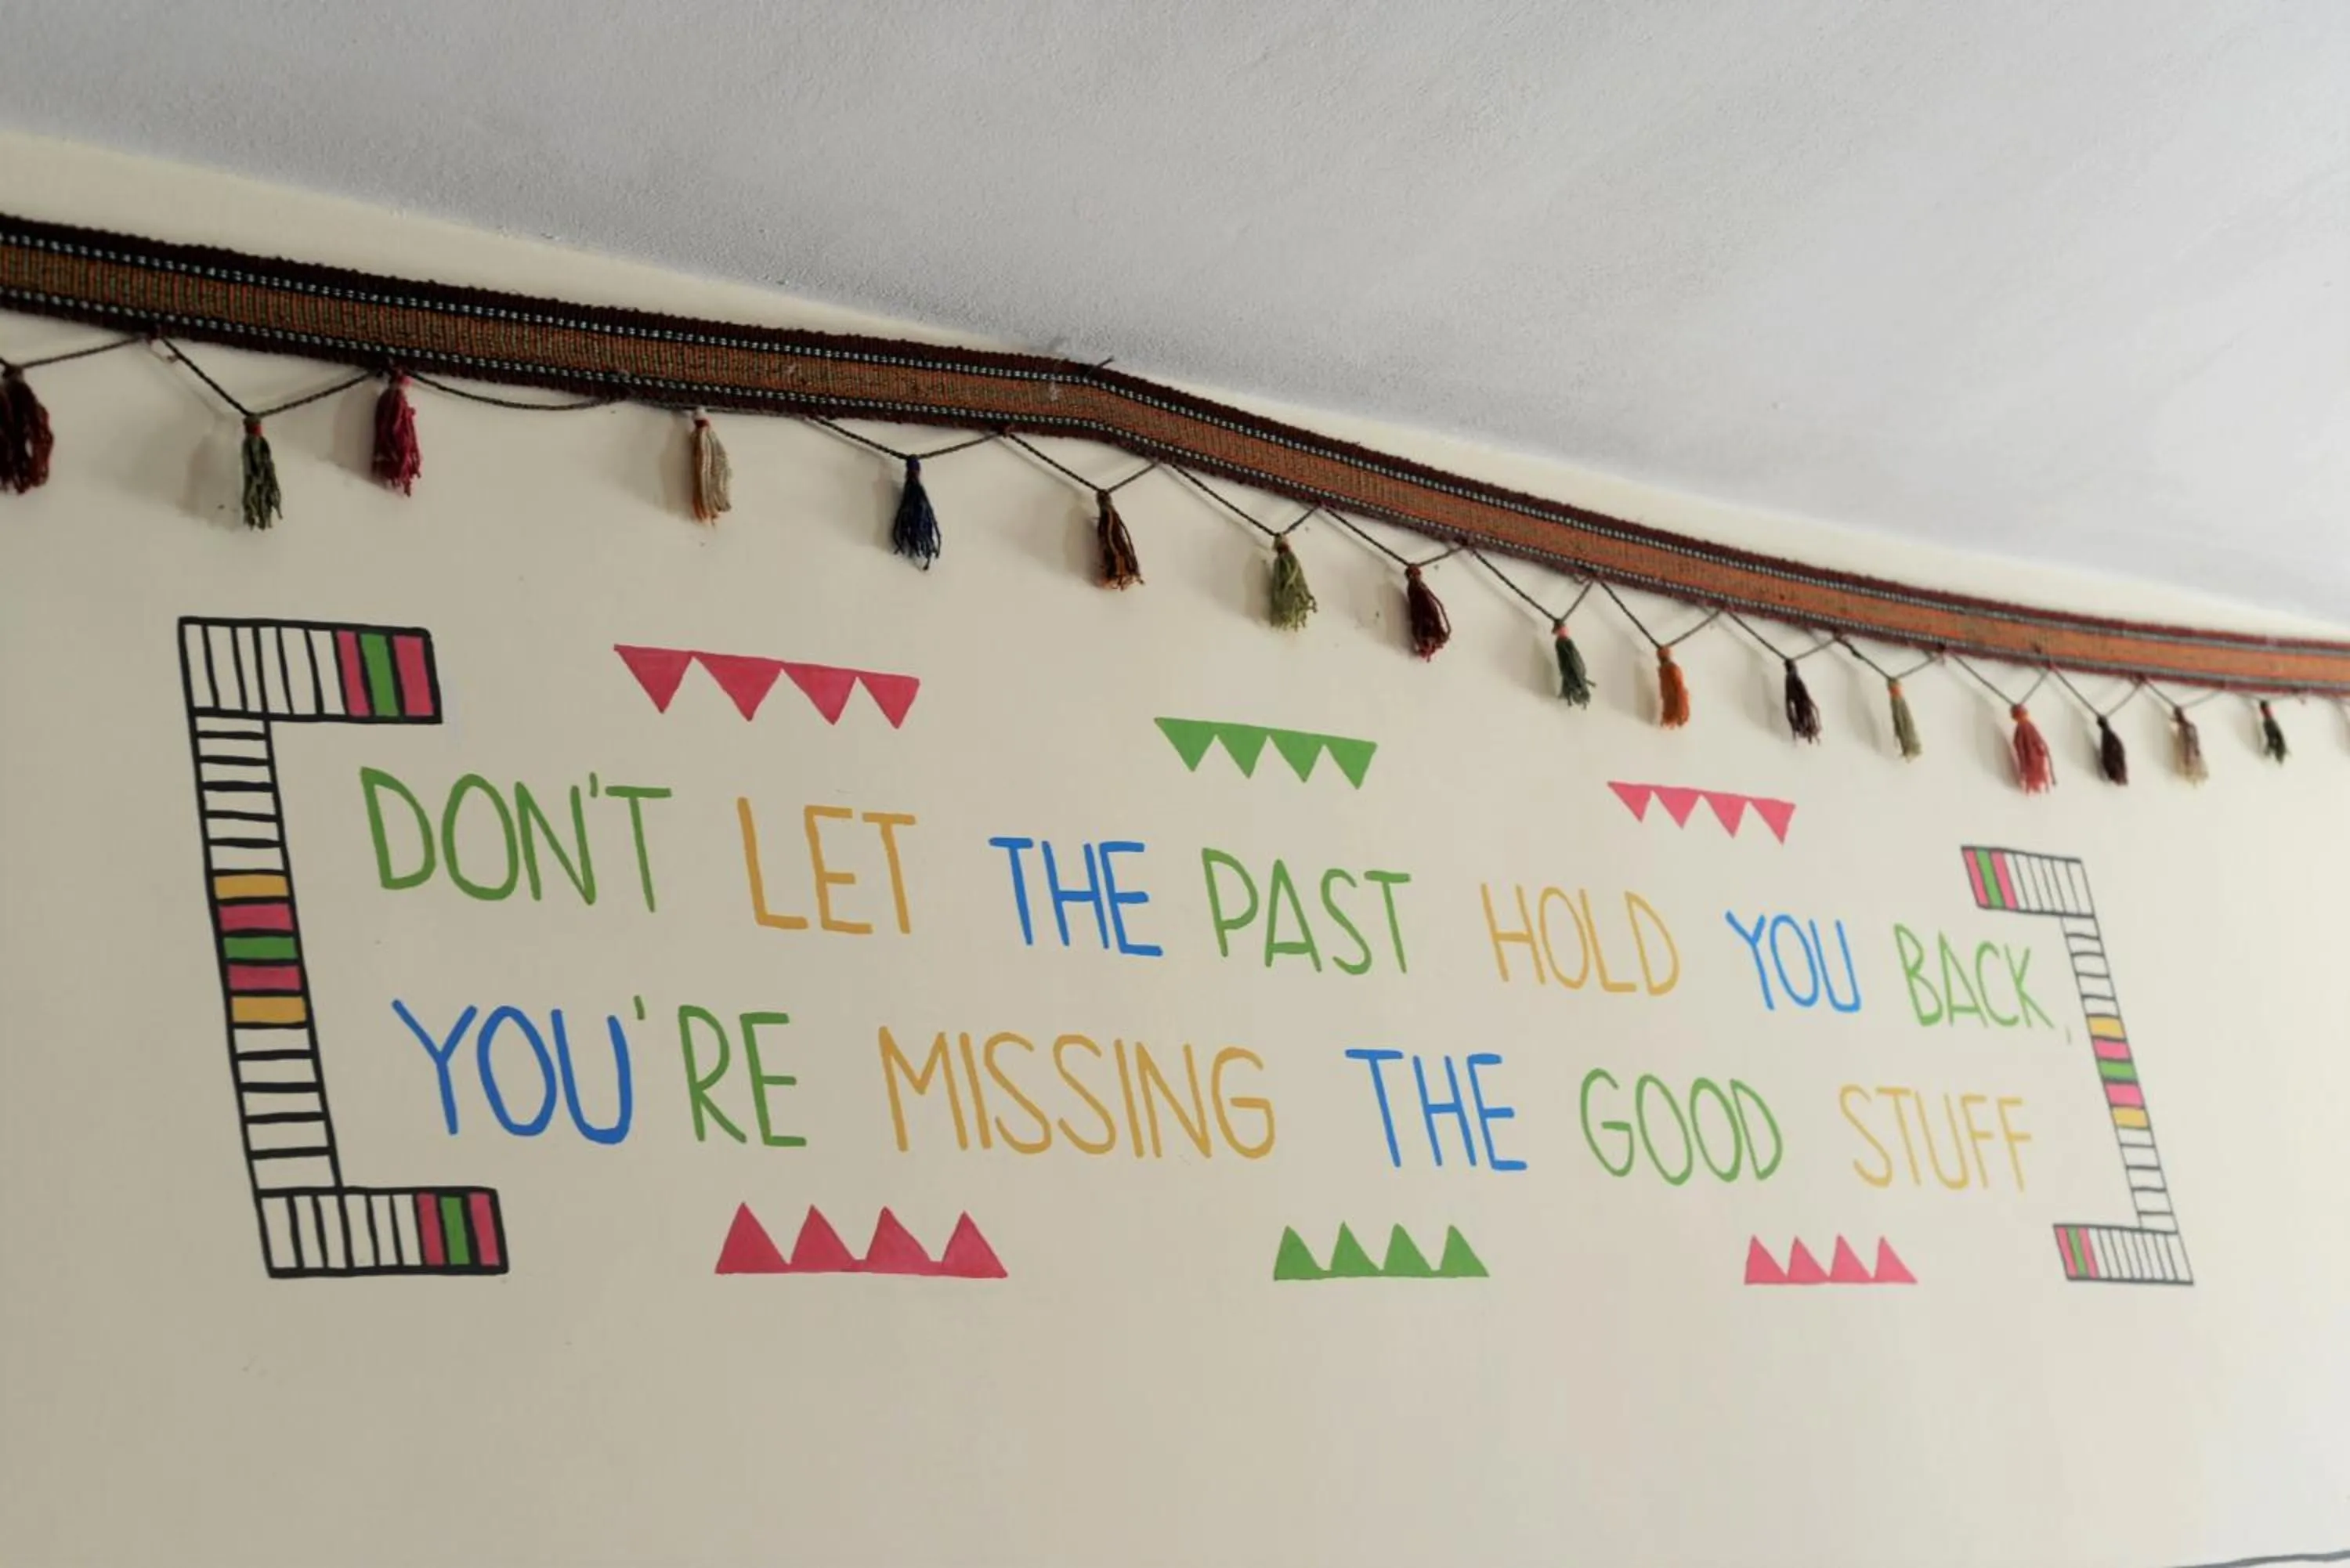 DON'T LET THE PAST HOLD YOU BACK,
YOU'RE MISSING THE GOOD STUFF